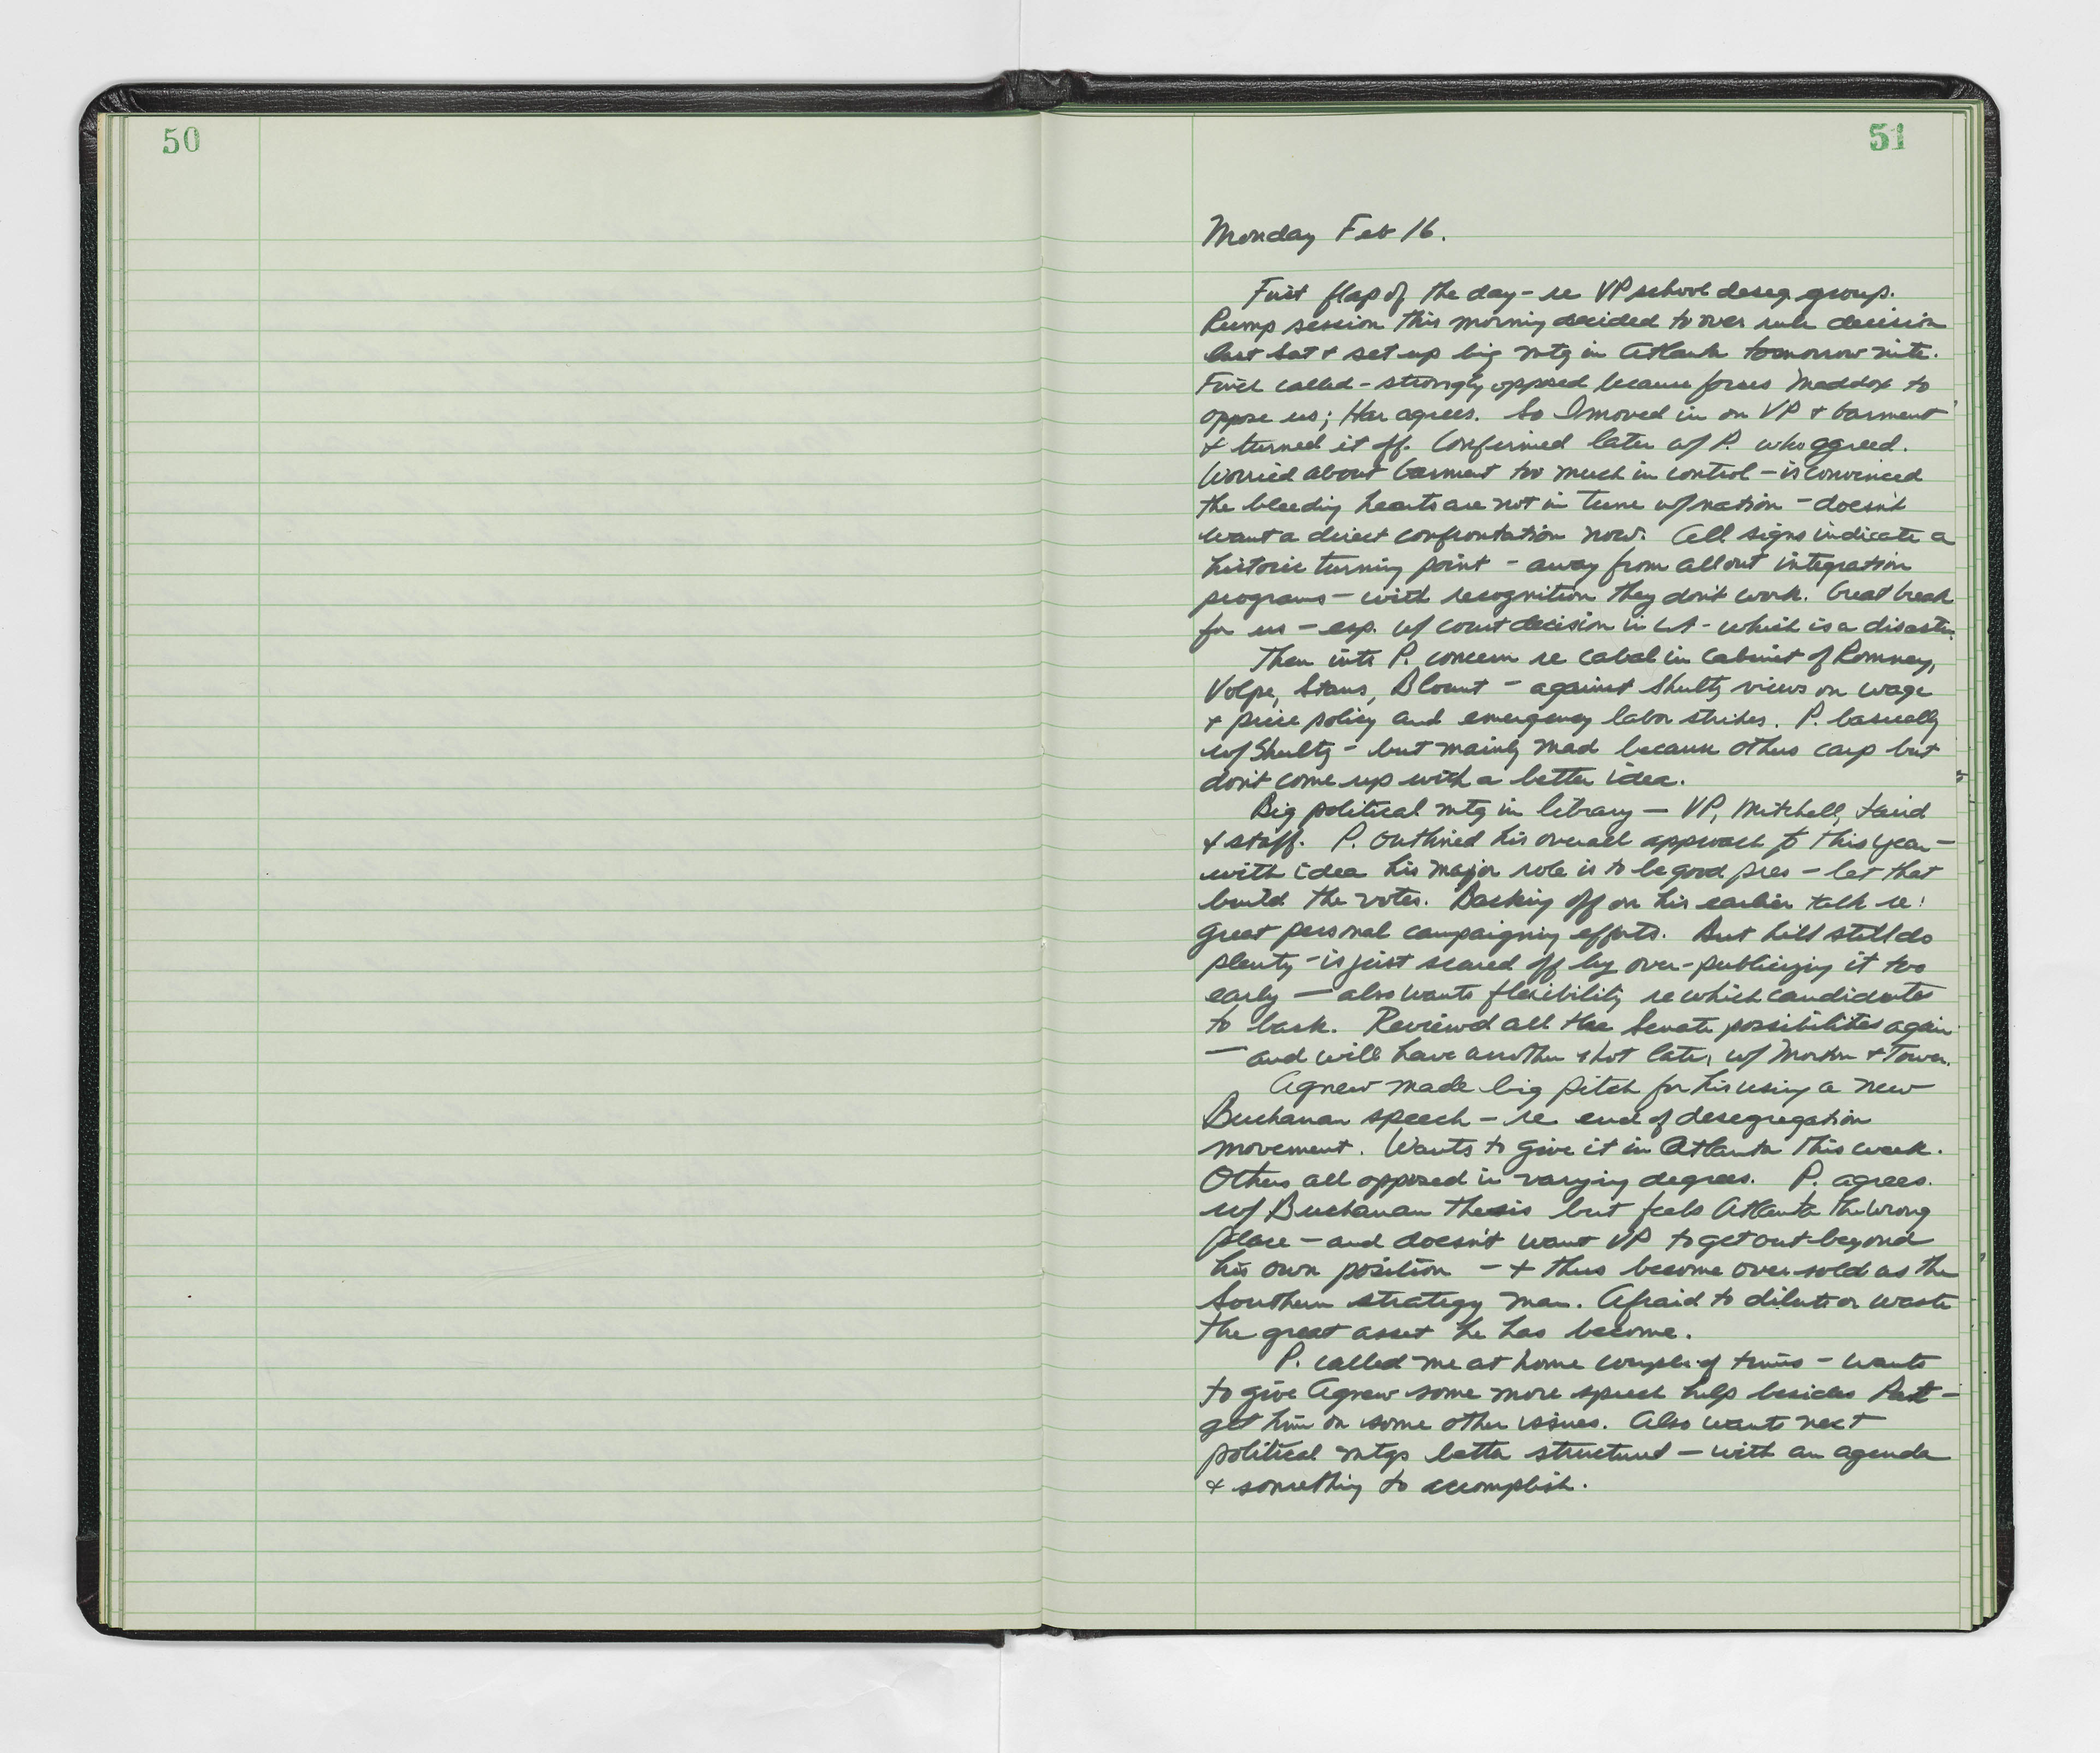 50
51
Monday Feb 16.
First flap of the day - re VP school deseg. group.
Rump session this morning decided to over rule decision
last Sat + set up big mtg in Atlanta tomorrow nite.
Finch called - strongly opposed because forces Maddox to
oppose us; Har agrees. So I moved in on VP + Garment
+ turned it off. Confirmed later w/ P. who agreed.
Worried about Garment too much in control - is convinced
the bleeding hearts are not in tune w/ nation - doesn't
want a direct confrontation now. All signs indicate a
historic turning point - away from all out integration
programs - with recognition they don't work. Great break
for us - esp. w/ court decision in LA - which is a disaster.
Then into P. concern re cabal in Cabinet of Romney,
Volpe, Stans, Blount - against Shultz views on wage
+ price policy and emergency labor strikes. P. basically
w/ Shultz - but mainly mad because others carp but
don't come up with a better idea.
Big political mtg in library - VP, Mitchell,
+ staff. P. outlined his overall approach to this year -
with idea his major role is to be good pres - let that
build the votes. Backing off on his earlier talk re:
great personal campaigning efforts. But he'll still do
plenty - is just scared off by over-publicizing it too
early - also wants flexibility re which candidates
to back. Reviewed all the Senate possibilities again
- and will have another shot later, w/ Morton + Tower.
Agnew made big pitch for his using a new
Buchanan speech - re end of desegregation
movement. Wants to give it in Atlanta this week.
Others all opposed in varying degrees. P. agrees.
w/ Buchanan thesis but feels Atlanta the wrong
place - and doesn't want VP to get out beyond
his own position - + thus become over-sold as the
Southern strategy man. Afraid to dilute or waste
the great asset he has become.
P. called me at home couple of times - wants
to give Agnew some more speech help besides Pat -
get him on some other issues. Also wants next
political mtgs better structured - with an agenda
+ something to accomplish.